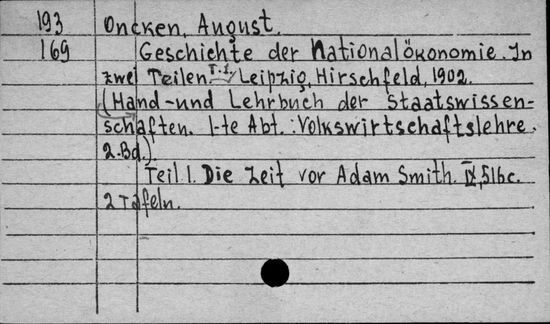 193 Oncken, August.
169 Geschichte der Nationalökonomie. In
zwei Teilen T.1, Leipzig, Hirschfeld, 1902.
(Hand-und Lehrbuch der Staatswissen-
schaften. 1-te Abt.: Volkswirtschaftslehre.
2.Bd.).
Teil 1. Die Zeit vor Adam Smith. IX, 516c.
2 Tafeln.